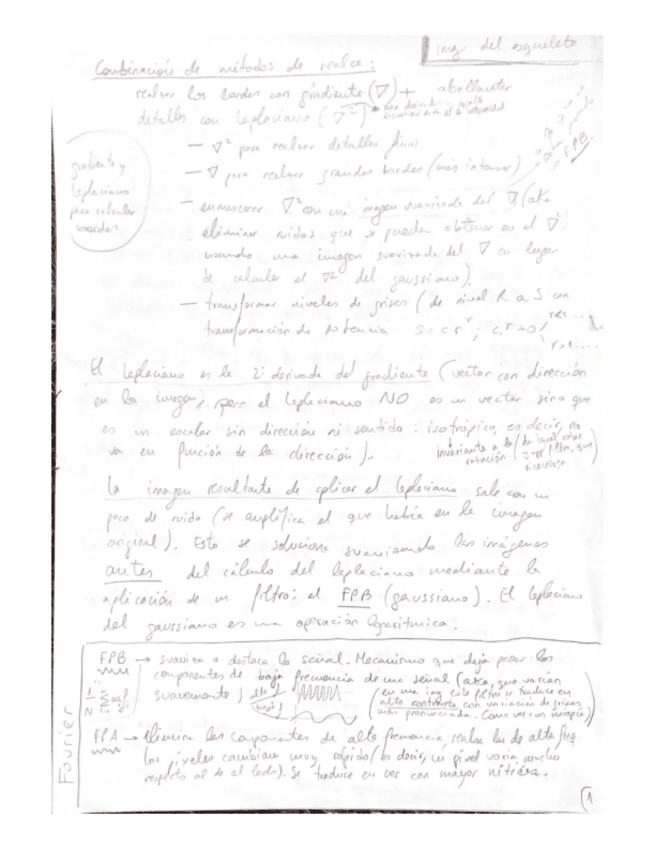 img del esqueleto
Combinación de métodos de realce:
realzar los bordes con gradiente (∇) + abrillantar
detalles con laplaciano (∇²)
— ∇² para realzar detalles finos
— ∇ para realzar grandes bordes (más intensos)
FPB
gradiente y
laplaciano
para calcular
bordes
— enmascarar ∇² con una imagen suavizada del ∇ (aka
eliminar ruidos que se puedan obtener en el ∇²
usando una imagen suavizada del ∇ en lugar
de calcular el ∇² del gaussiano).
— transformar niveles de grises (de nivel R a S con
transformación de potencia s = c r^γ; c, γ > 0
El laplaciano es la 2ª derivada del gradiente (vector con dirección
en la imagen, pero el laplaciano NO es un vector sino que
es un escalar sin dirección ni sentido: isotrópico, es decir, no
va en función de la dirección).
invariante a la rotación
(da igual rotar
y apl filtro, que
viceversa)
La imagen resultante de aplicar el laplaciano sale con un
poco de ruido (se amplifica el que había en la imagen
original). Esto se soluciona suavizando las imágenes
antes del cálculo del laplaciano mediante la
aplicación de un filtro: el FPB (gaussiano). El laplaciano
del gaussiano es una operación logarítmica.
Fourier
FPB → suaviza o destaca la señal. Mecanismo que deja pasar los
componentes de baja frecuencia de una señal (aka, que varían
suavemente)
(en una img este filtro se traduce en
alto contraste con variación de grises
más pronunciada. Como ver con miopía)
FPA → elimina las componentes de alta frecuencia, realza las de alta freq
los píxeles cambian muy rápido (es decir, un píxel varía mucho
respecto al de al lado). Se traduce en ver con mayor nitidez.
1